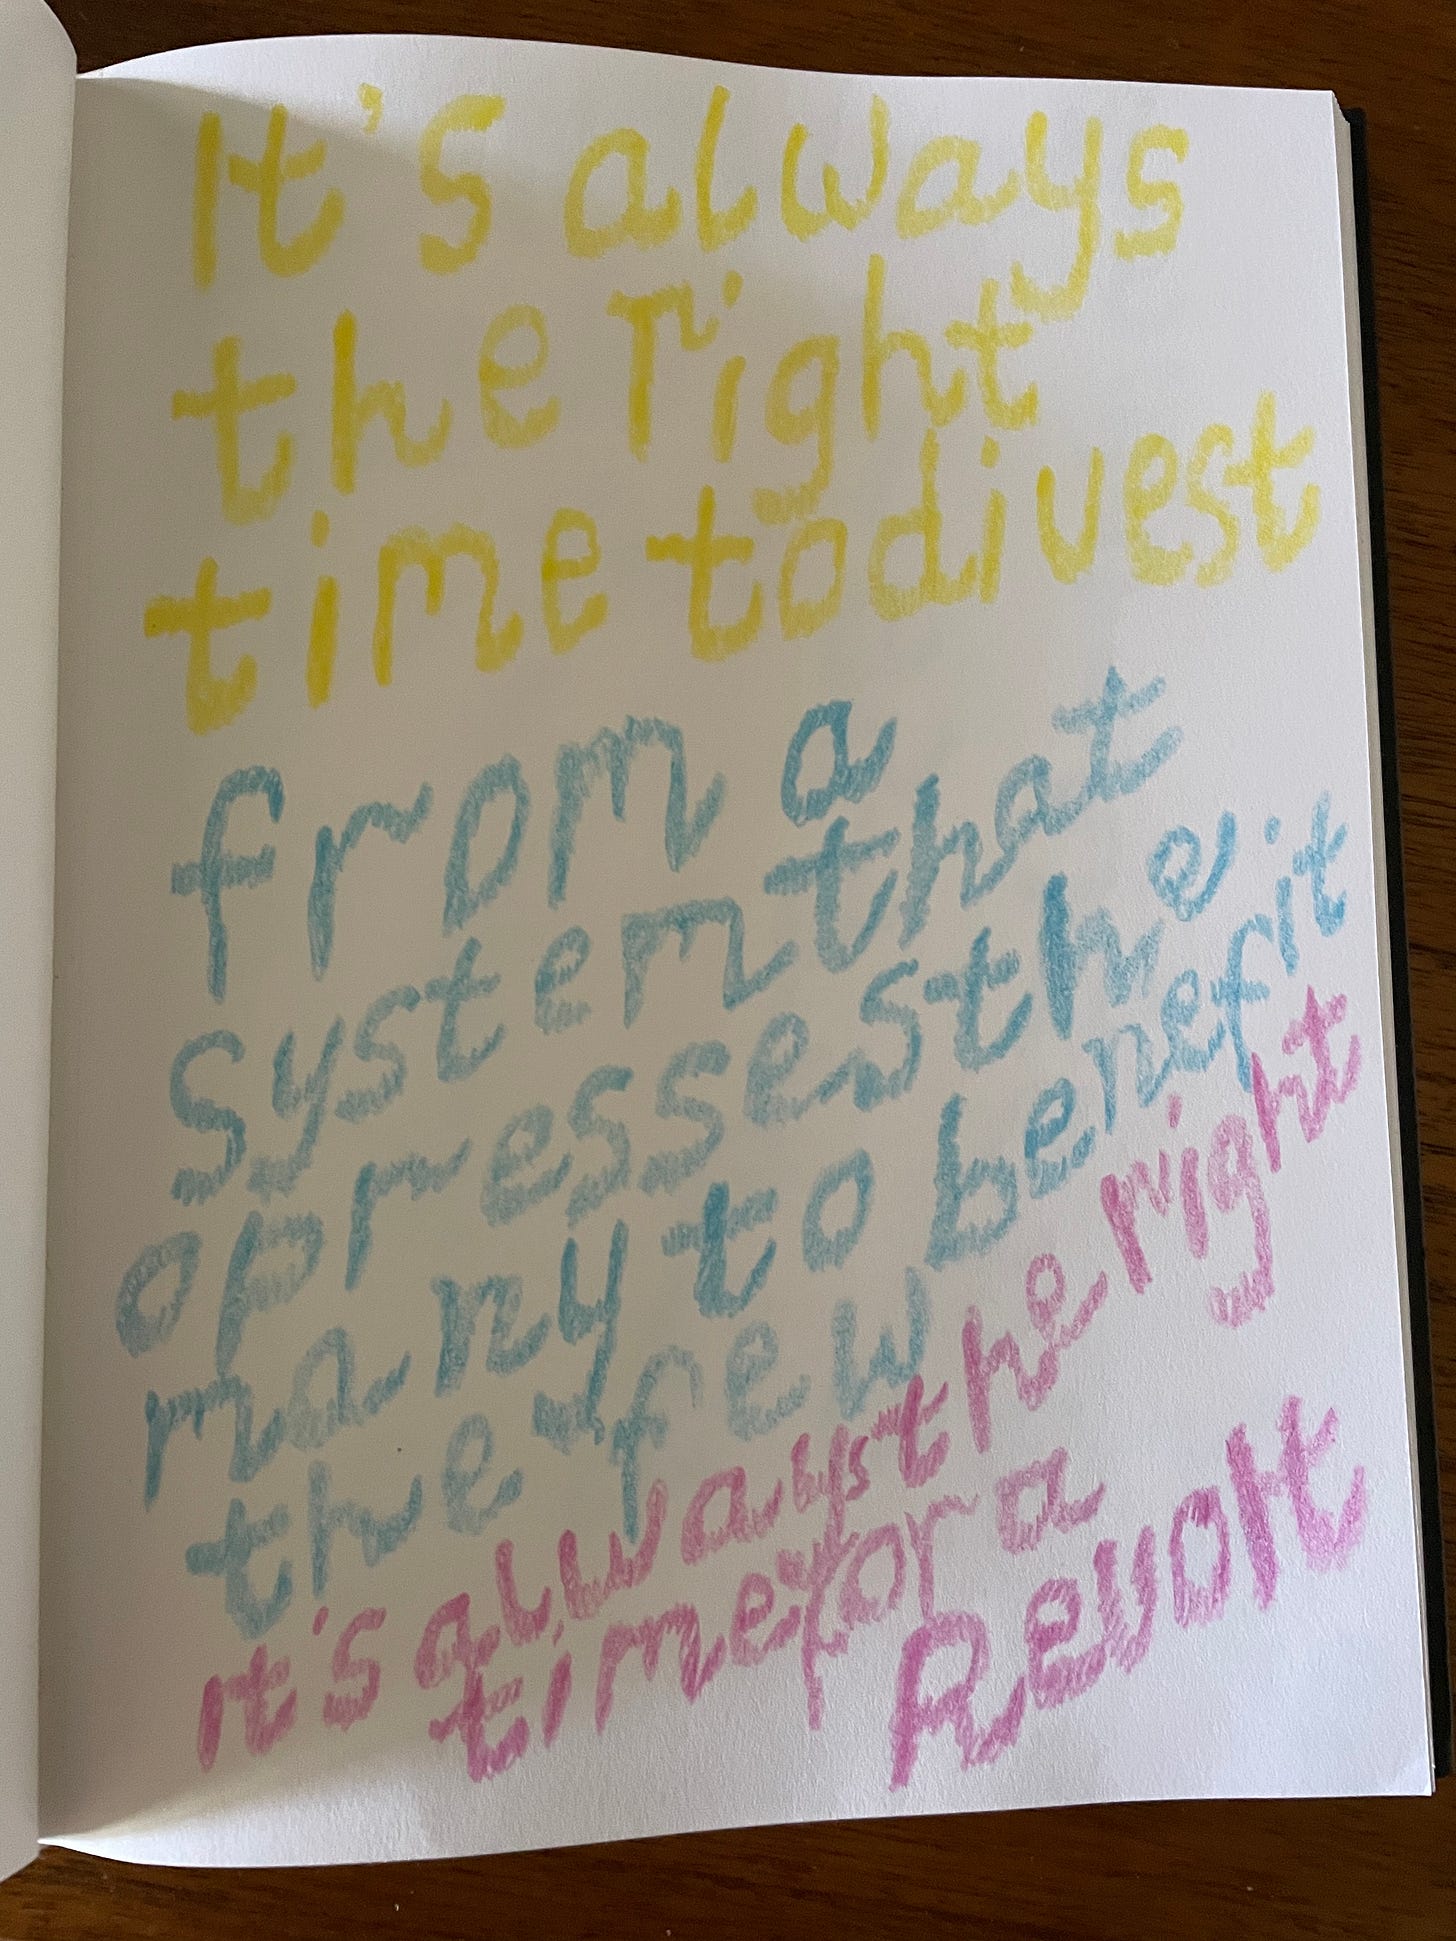 It's always
the right
time to divest
from a
system that
opresses the
many to benefit
the few
It's always the right
time for a
Revolt